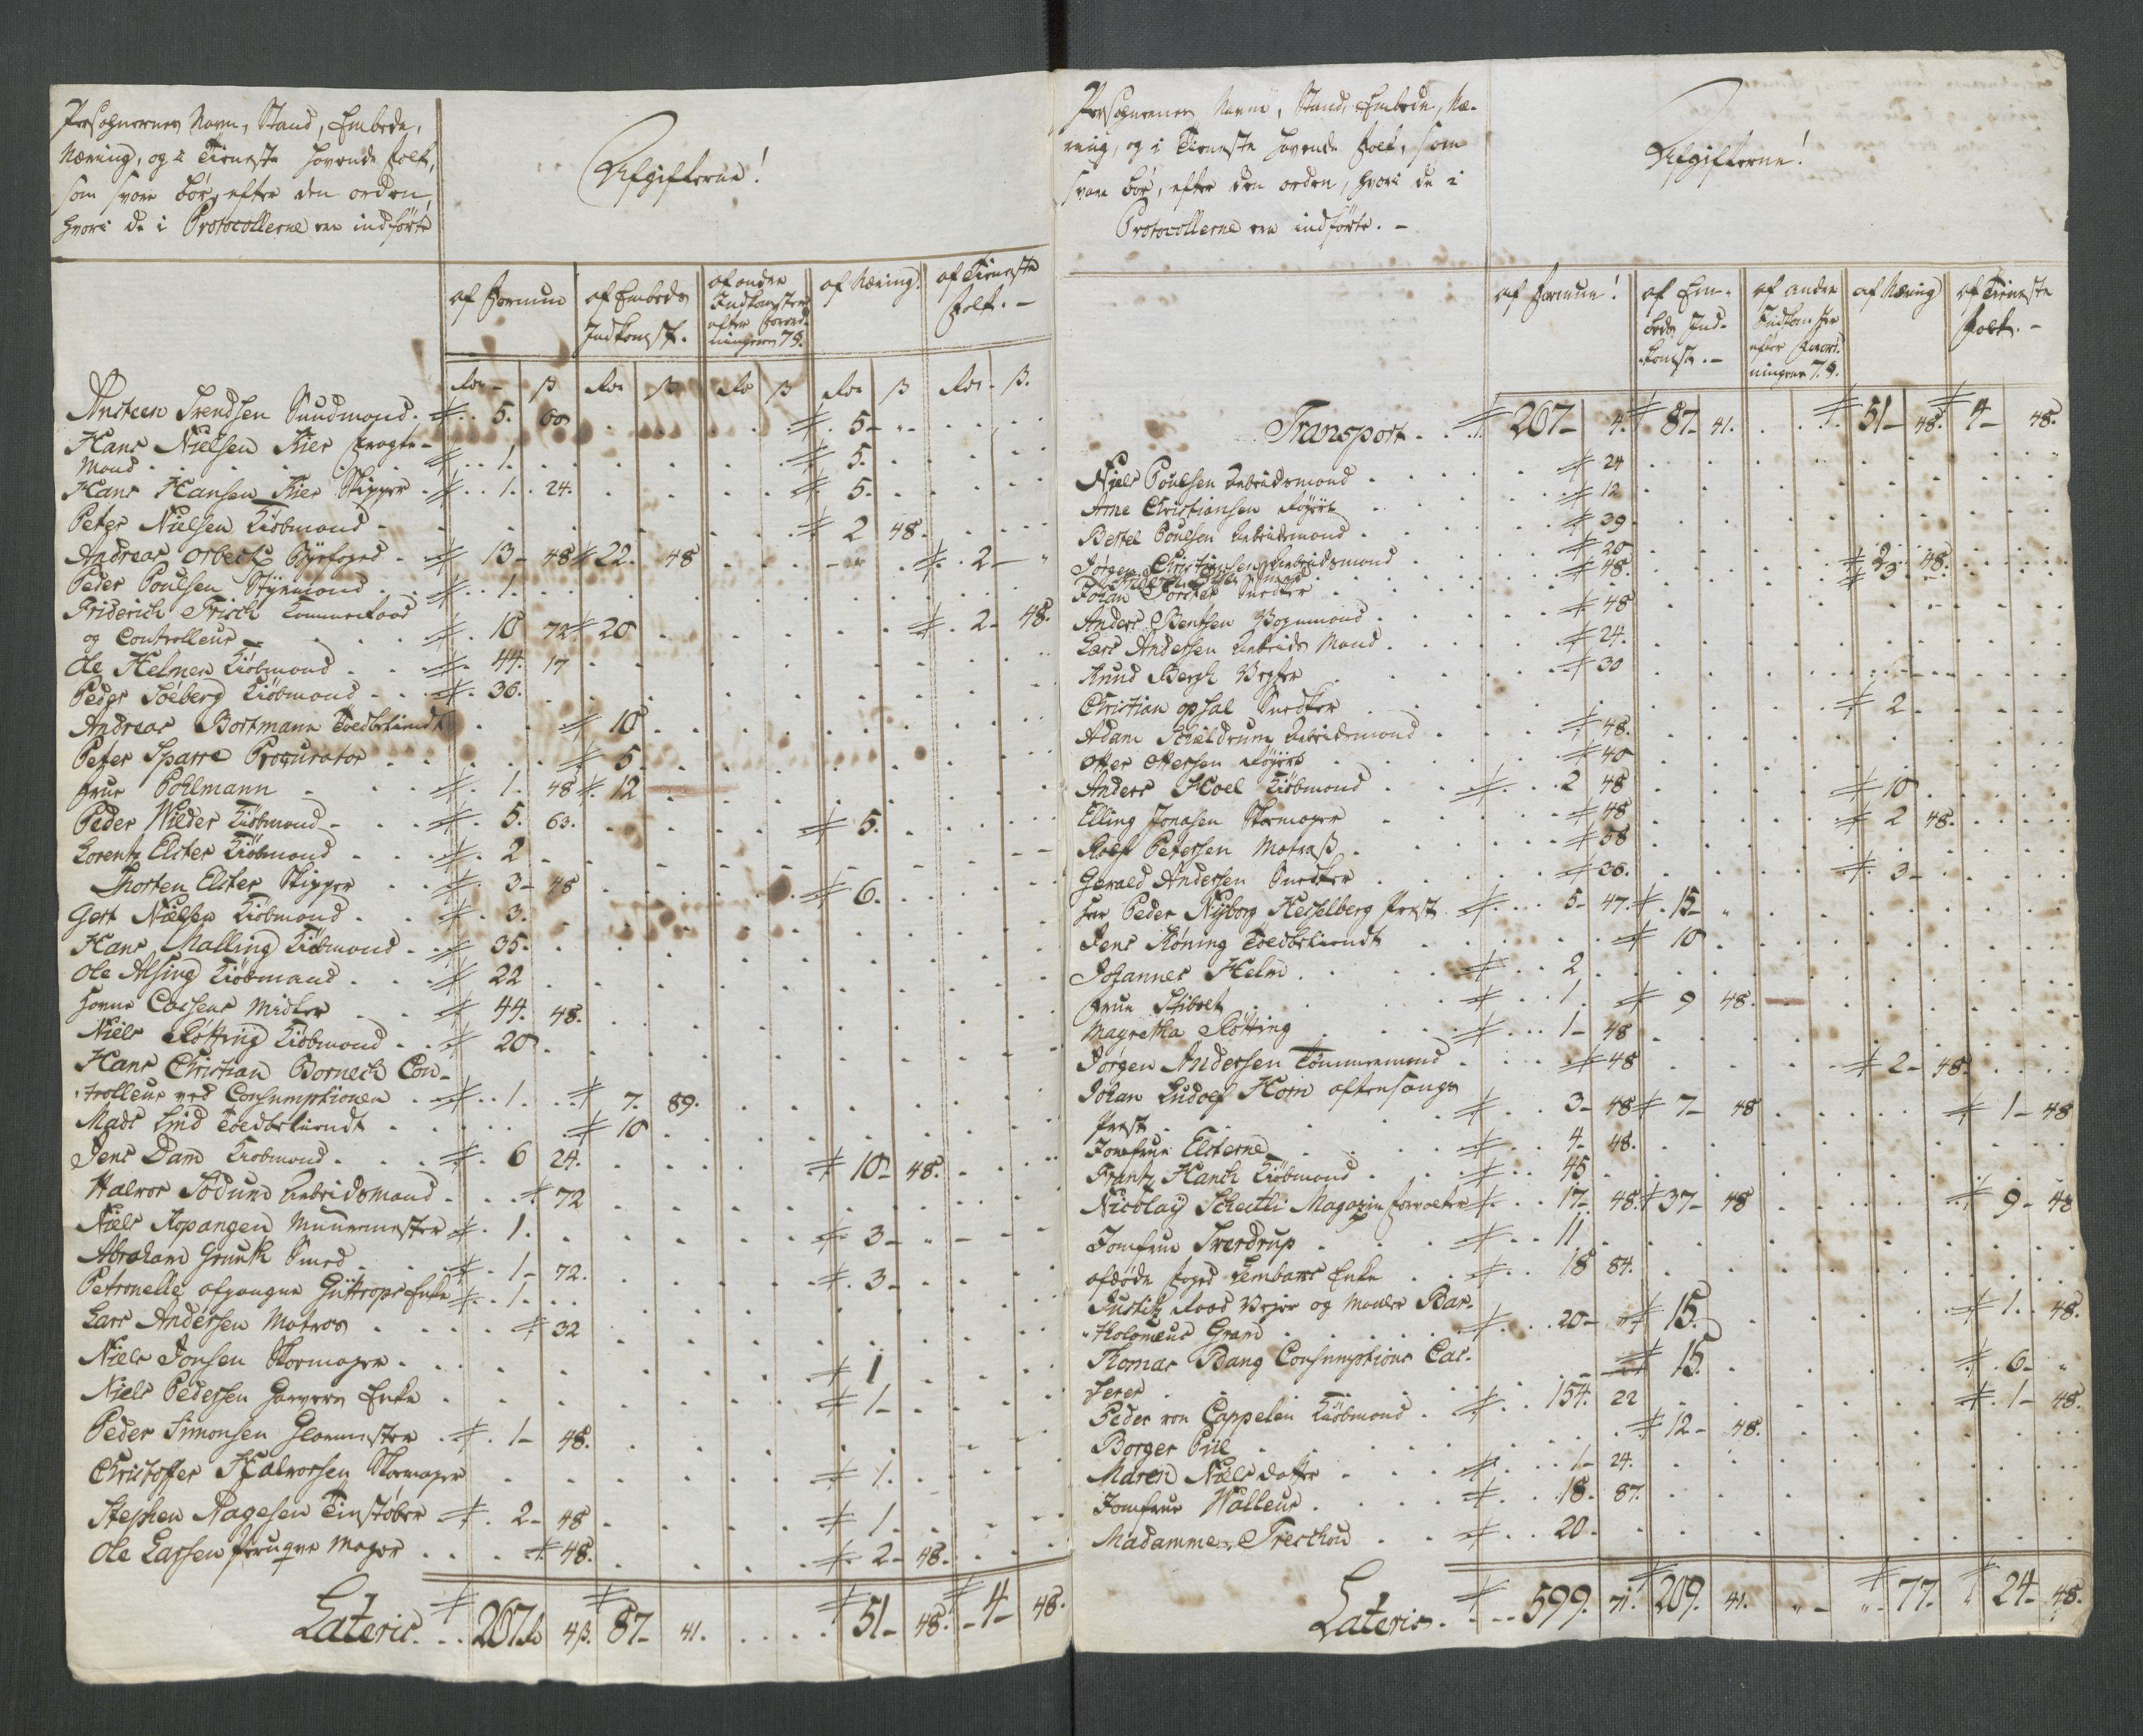 Persohnernes Navn, Stand, Embede,
Næring, og i Tieneste havende Folk,
som svare bør, efter den orden,
hvori de i Protocollerne ere indførte
Afgifterne!
af Formue
af Embeds Indkomst.
af andre Indkomster efter Forordningens 7 §.
af Næring.
af Tieneste Folk. -
Rdr - ß Rdr ß Rd ß Rdr ß Rdr - ß.
Ansteen Svendsen Suudmand. 5. 60 5 -
Hans Nielsen Kier Fragte-
mand 1. 5.
Hans Hansen Kier Skipper 1. 24. 5.
Peter Nielsen Kiøbmand 2 48.
Andreas Orbech Byefoged 13 - 48 22. 48 2 -
Peder Poulsen Styrmand 1.
Friderich Frisch Kammerraad
og Controlleur 10 72 20 2 - 48.
Ole Helmer Kiøbmand 44. 17
Peder Soeberg Kiøbmand 36.
Andreas Bortmann Toedbetiendt 10
Peter Sparre Procurator 5
Frue Pohlmann 1. 48 12
Peder Wilder Kiøbmand 5. 63. 5.
Lorentz Elster Kiøbmand 2
Thorten Elster Skipper 3 - 48 6.
Gert Nielsen Kiøbmand 3.
Hans Malling Kiøbmand 35.
Ole Alsing Kiøbmand 22
Cassens 44. 48.
Niels Røtting Kiøbmand 20
Hans Christian Bornech Con-
trolleur ved Consumptionen 1. 7. 89.
Mads Lind Toedbetiendt 10
Jens Dam Kiøbmand 6 24. 10 - 48.
Halvor Södund Arbeidsmand 72
Niels Kopangen Muurmester 1. 3 -
Abraham Grunth Smed 1 - 72. 3 -
Petronelle afgangne Güttrops Enke 1.
Lars Andersen Matros 32
Niels Jonsen Skomager 1
Niels Pedersen Garvers Enke 1 -
Peder Simonsen Glarmester 1 - 48.
Christoffer Halvorsen Skomager 1.
Stephen Aagesen Tinstøber 2 - 48 1.
Ole Larsen Peruqve Mager 48. 2 - 48.
Lateris 267 rd 4 ß. 87 - 41. 51 - 48. 4 - 48.
Persohnernes Navne, Stand, Embede, Næ-
ring, og i Tieneste havende Folk, som
svare bør, efter den orden, hvori de i
Protocollerne ere indførte. -
Afgifterne!
af Formue!
af Embeds Indkomst. -
af andre Indkomster efter Forordningens 7. §.
af Næring
af Tieneste Folk. -
Transport 267 - 4. 87 - 41. 51 - 48. 4 - 48.
Niels Poulsen Arbeidsmand 24
Arne Christiansen 12
Bertel Poulsen Arbeidsmand 39
Jörgen Christiansen Arbeidsmand 20
Johan Förster Snedker 48. 3
Anders Bentsen Vognmand 48
Lars Andersen Arbeids Mand 24.
Knud Bergh 30
Christian Opsal Snedker 2
Adam Schieldrum Arbeidsmand 48.
Otter Ottersen 40
Anders Hoel Kiøbmand 2 48 10
Elling Jonasen Skomager 48 2 48.
Rolf Petersen Matroß 38
Gerald Andersen Snedker 36. 3 -
Her Peder Nyborg Hesselberg Prest 5 - 47. 15 -
Jens Röning Toedbetiendt 10
Johannes Helm 2
Frue Stibolt 1. 9 48.
Magretha Røtting 1 - 48
Jörgen Andersen Tömmermand 48 2 - 48.
Johan Ludolf Horn aftensangs
Prest 3 - 48 7 - 48 1 - 48
Jomfrue Elsterne 4 - 48.
Frantz Hanch Kiøbmand 45
Nicolay Scheitli Magazin Forvalter 17 - 48. 37 - 48 9 - 48
Jomfrue Sverdrup 11
afdøde Foged Enke 18 84.
Justitz Raad Veyer og Maaler Bar-
tholomeus Gram 20 - 15. 1. 48.
Thomas Bang Consumptions Cas-
serer 15. 6 -
Peder von Cappelen Kiøbmand 154. 22 1 - 48.
Borger Piil 12 - 48.
Maren Niels datter 1 - 24.
Jomfrue Walleur 18. 87.
Madamme Treschou 20.
Lateris 599. 71. 209. 41. 77. 24 - 48.